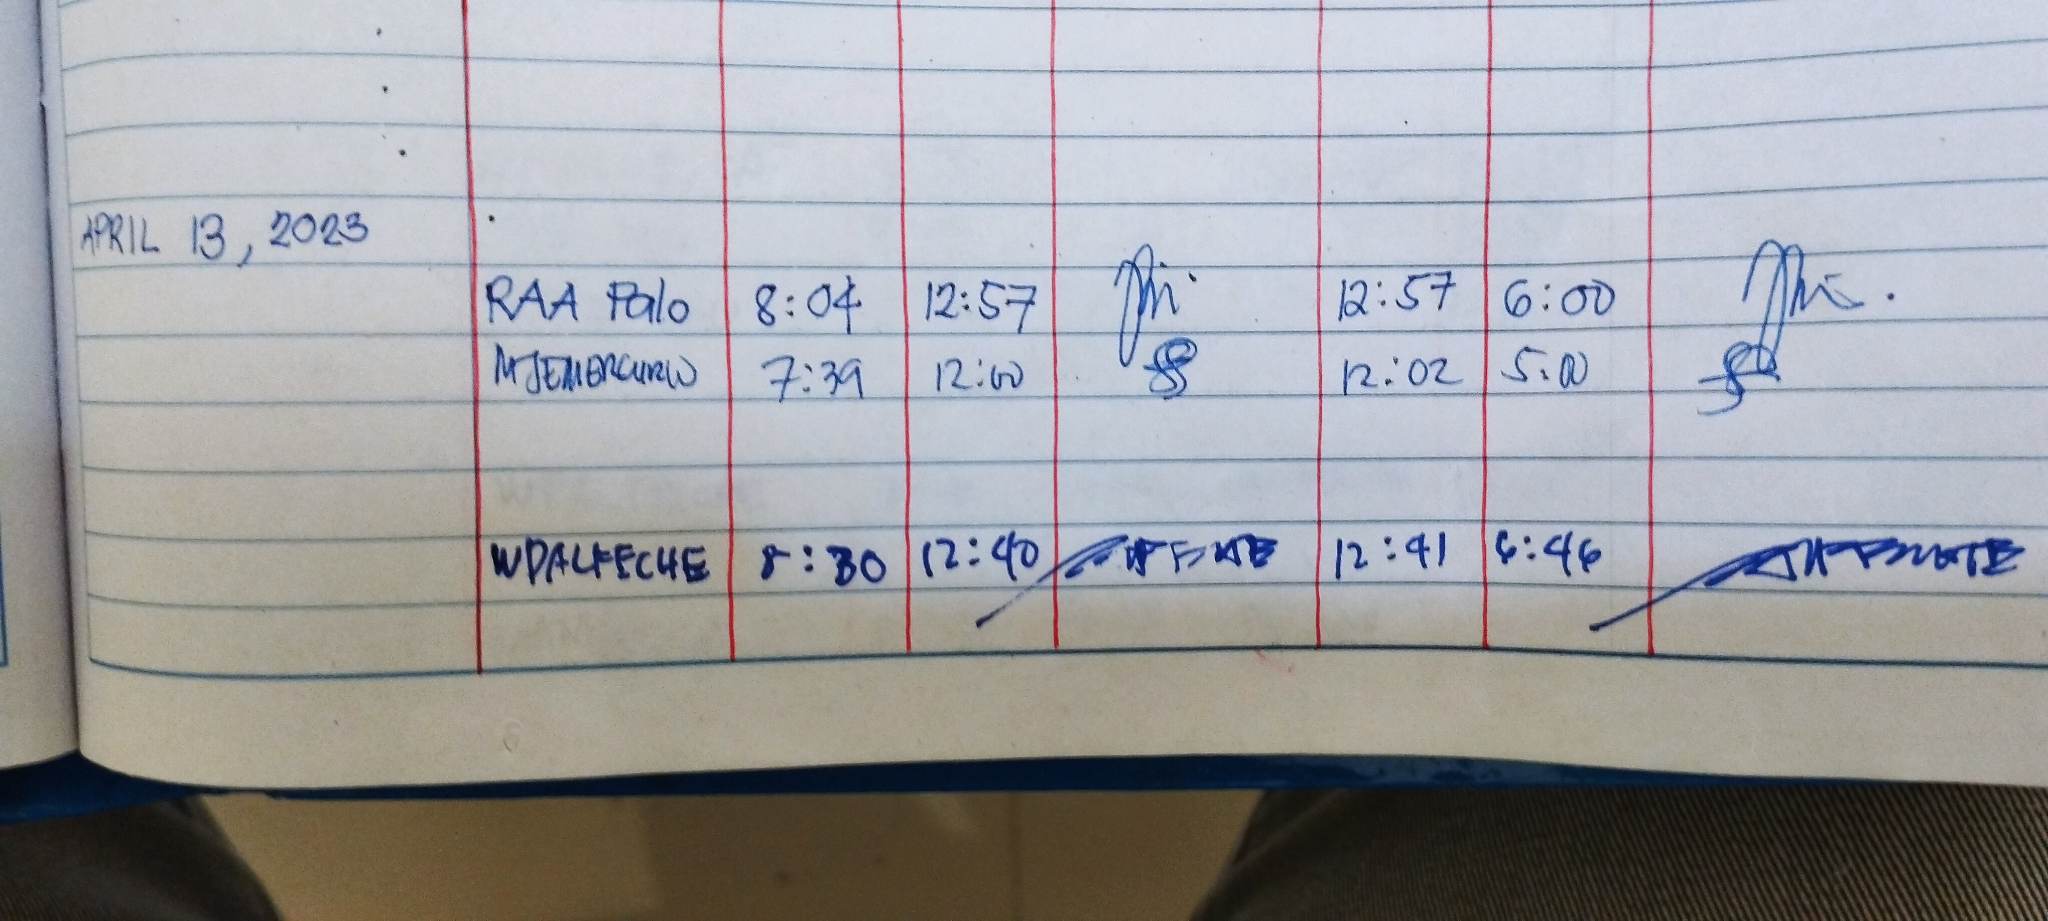 APRIL 13, 2023
RAA Palo 8:04 12:57 12:57 6:00
MJEMERCURIO 7:39 12:00 12:02 5:00
WDALFECHE 8:30 12:40 12:41 6:46